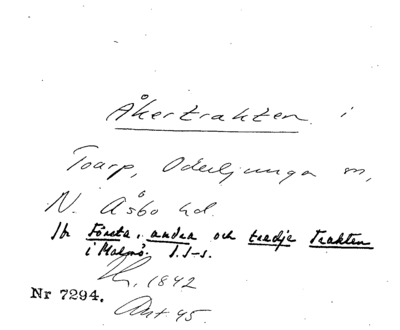 Åkertrakten i
Toarp, Oderljunga sn,
N. Åsbo hd.
Jfr Första, andra och tredje Trakten
i Malmö. J.S-s.
1842
Nr 7294.
Ant. 45.